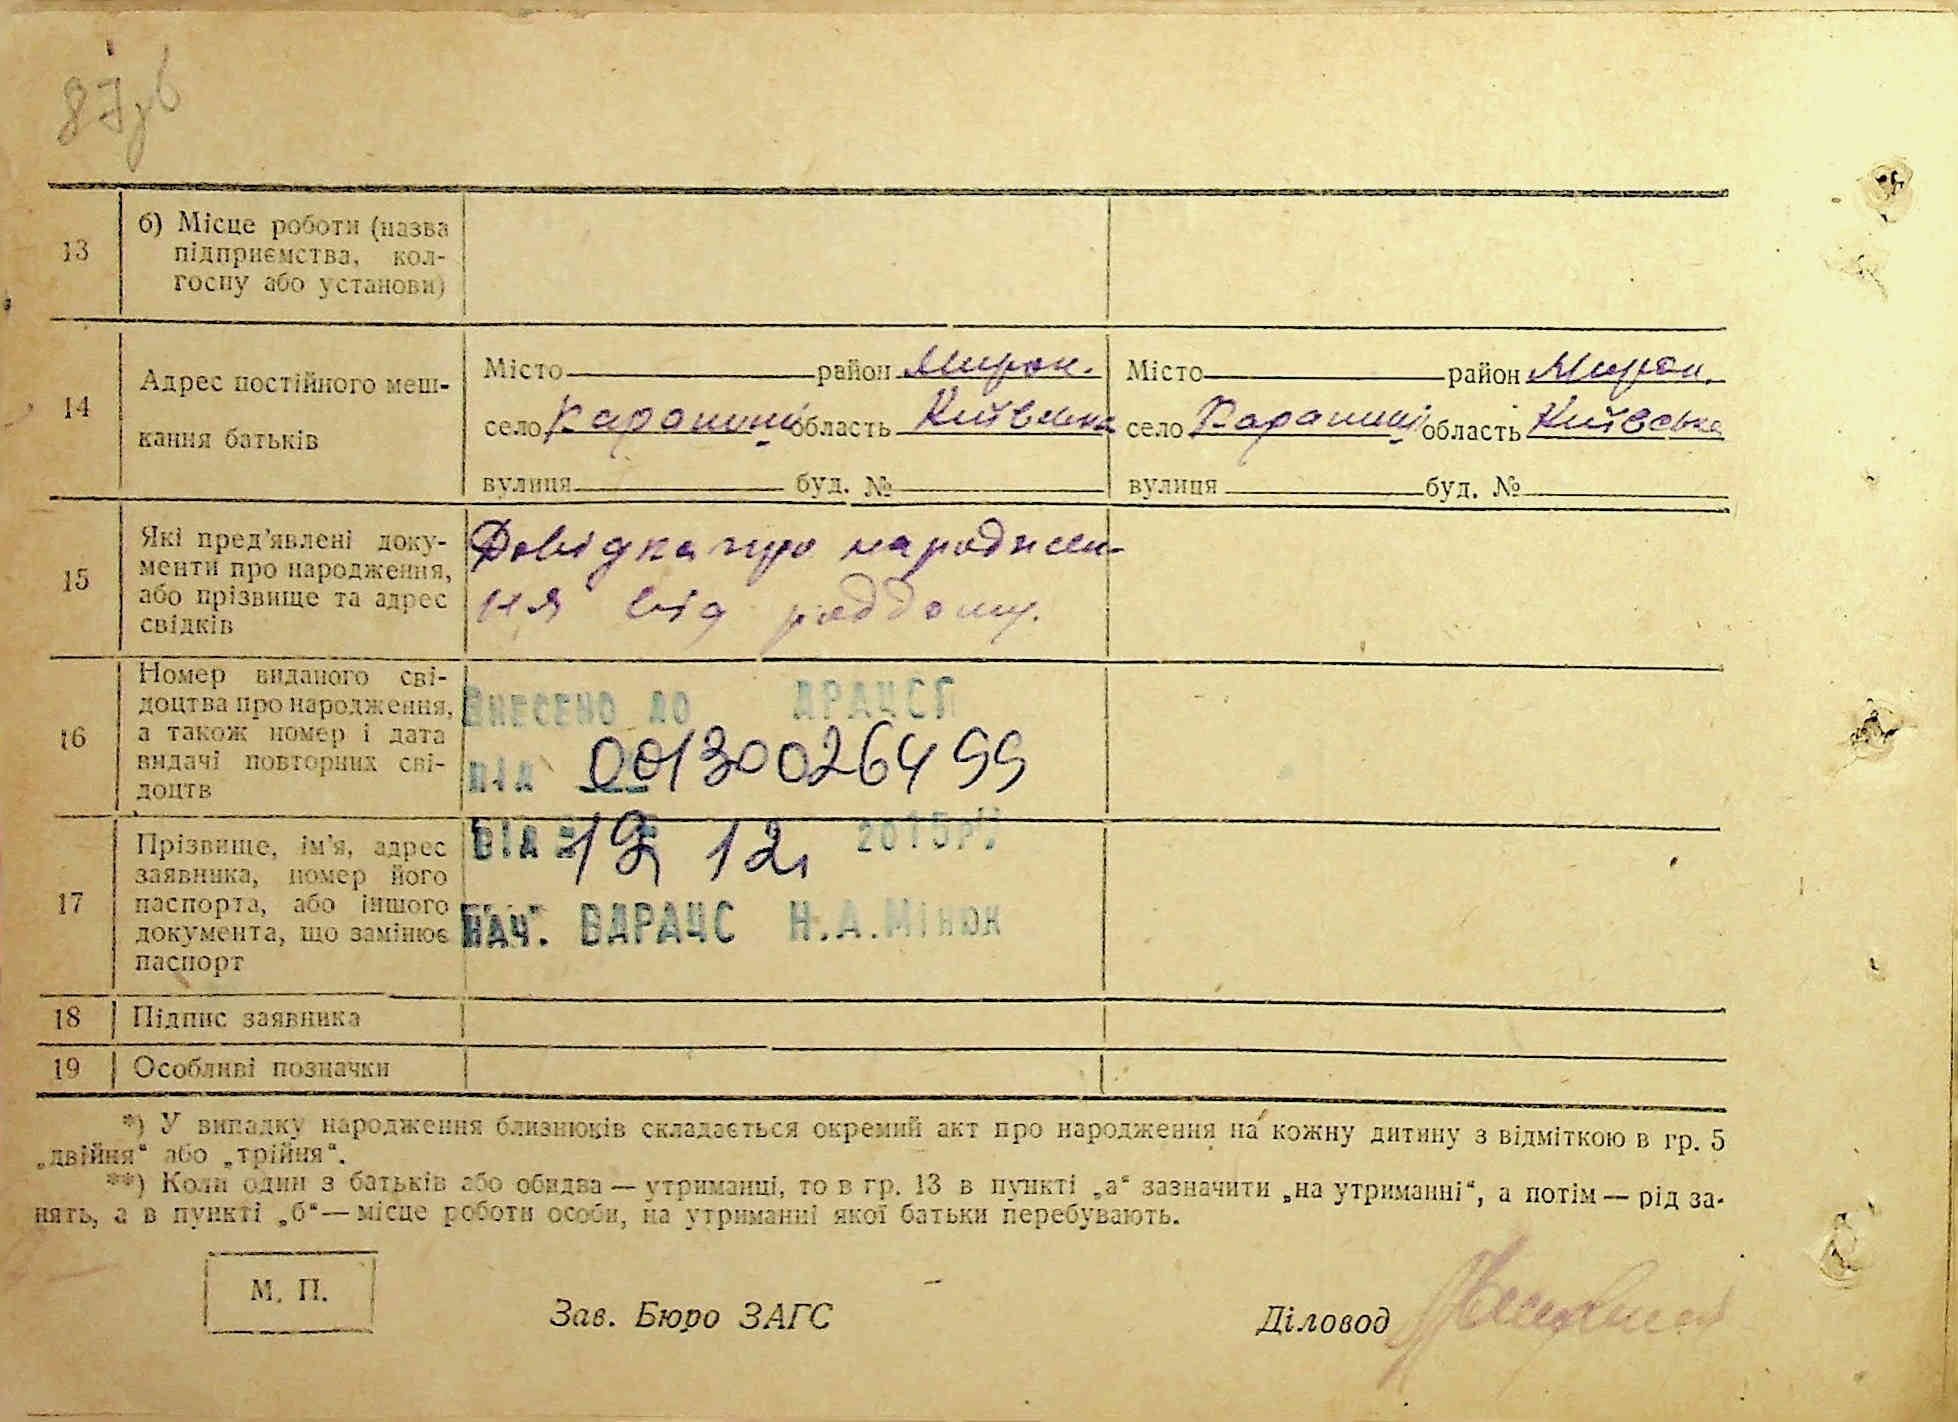 87зв
13
б) Місце роботи (назва
підприємства, кол-
госпу або установи)
14
Адрес постійного меш-
кання батьків
Місто район Мирон. Місто район Мирон.
село Карапиші область Київська село Карапиші область Київська
вулиця буд. № вулиця буд. №
15
Які пред'явлені доку-
менти про народження,
або прізвище та адрес
свідків
Довідка про народжен-
ня від роддому.
16
Номер виданого сві-
доцтва про народження,
а також номер і дата
видачі повторних сві-
доцтв
Внесено до ДРАЦСГ
під 00130026499
від 19 12. 2015р.
Нач. ВДРАЦС Н.А.Мінюк
17
Прізвище, ім'я, адрес
заявника, номер його
паспорта, або іншого
документа, що замінює
паспорт
18 Підпис заявника
19 Особливі позначки
*) У випадку народження близнюків складається окремий акт про народження на кожну дитину з відміткою в гр. 5
„двійня“ або „трійня“.
**) Коли один з батьків або обидва — утриманці, то в гр. 13 в пункті „а“ зазначити „на утриманні“, а потім — рід за-
нять, а в пункті „б“ — місце роботи особи, на утриманні якої батьки перебувають.
М. П.
Зав. Бюро ЗАГС Діловод